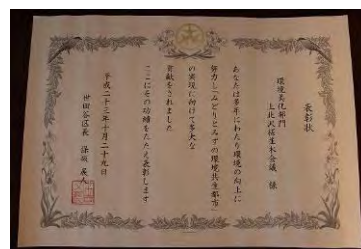 表彰状
環境美化部門
上北沢桜並木会議 様
あなたは多年にわたり環境の向上に
努力し「みどりとみずの環境共生都市」
の実現に向けて多大な
貢献をされました
ここにその功績をたたえ表彰します
平成二十三年十月二十九日
世田谷区長 保坂展人